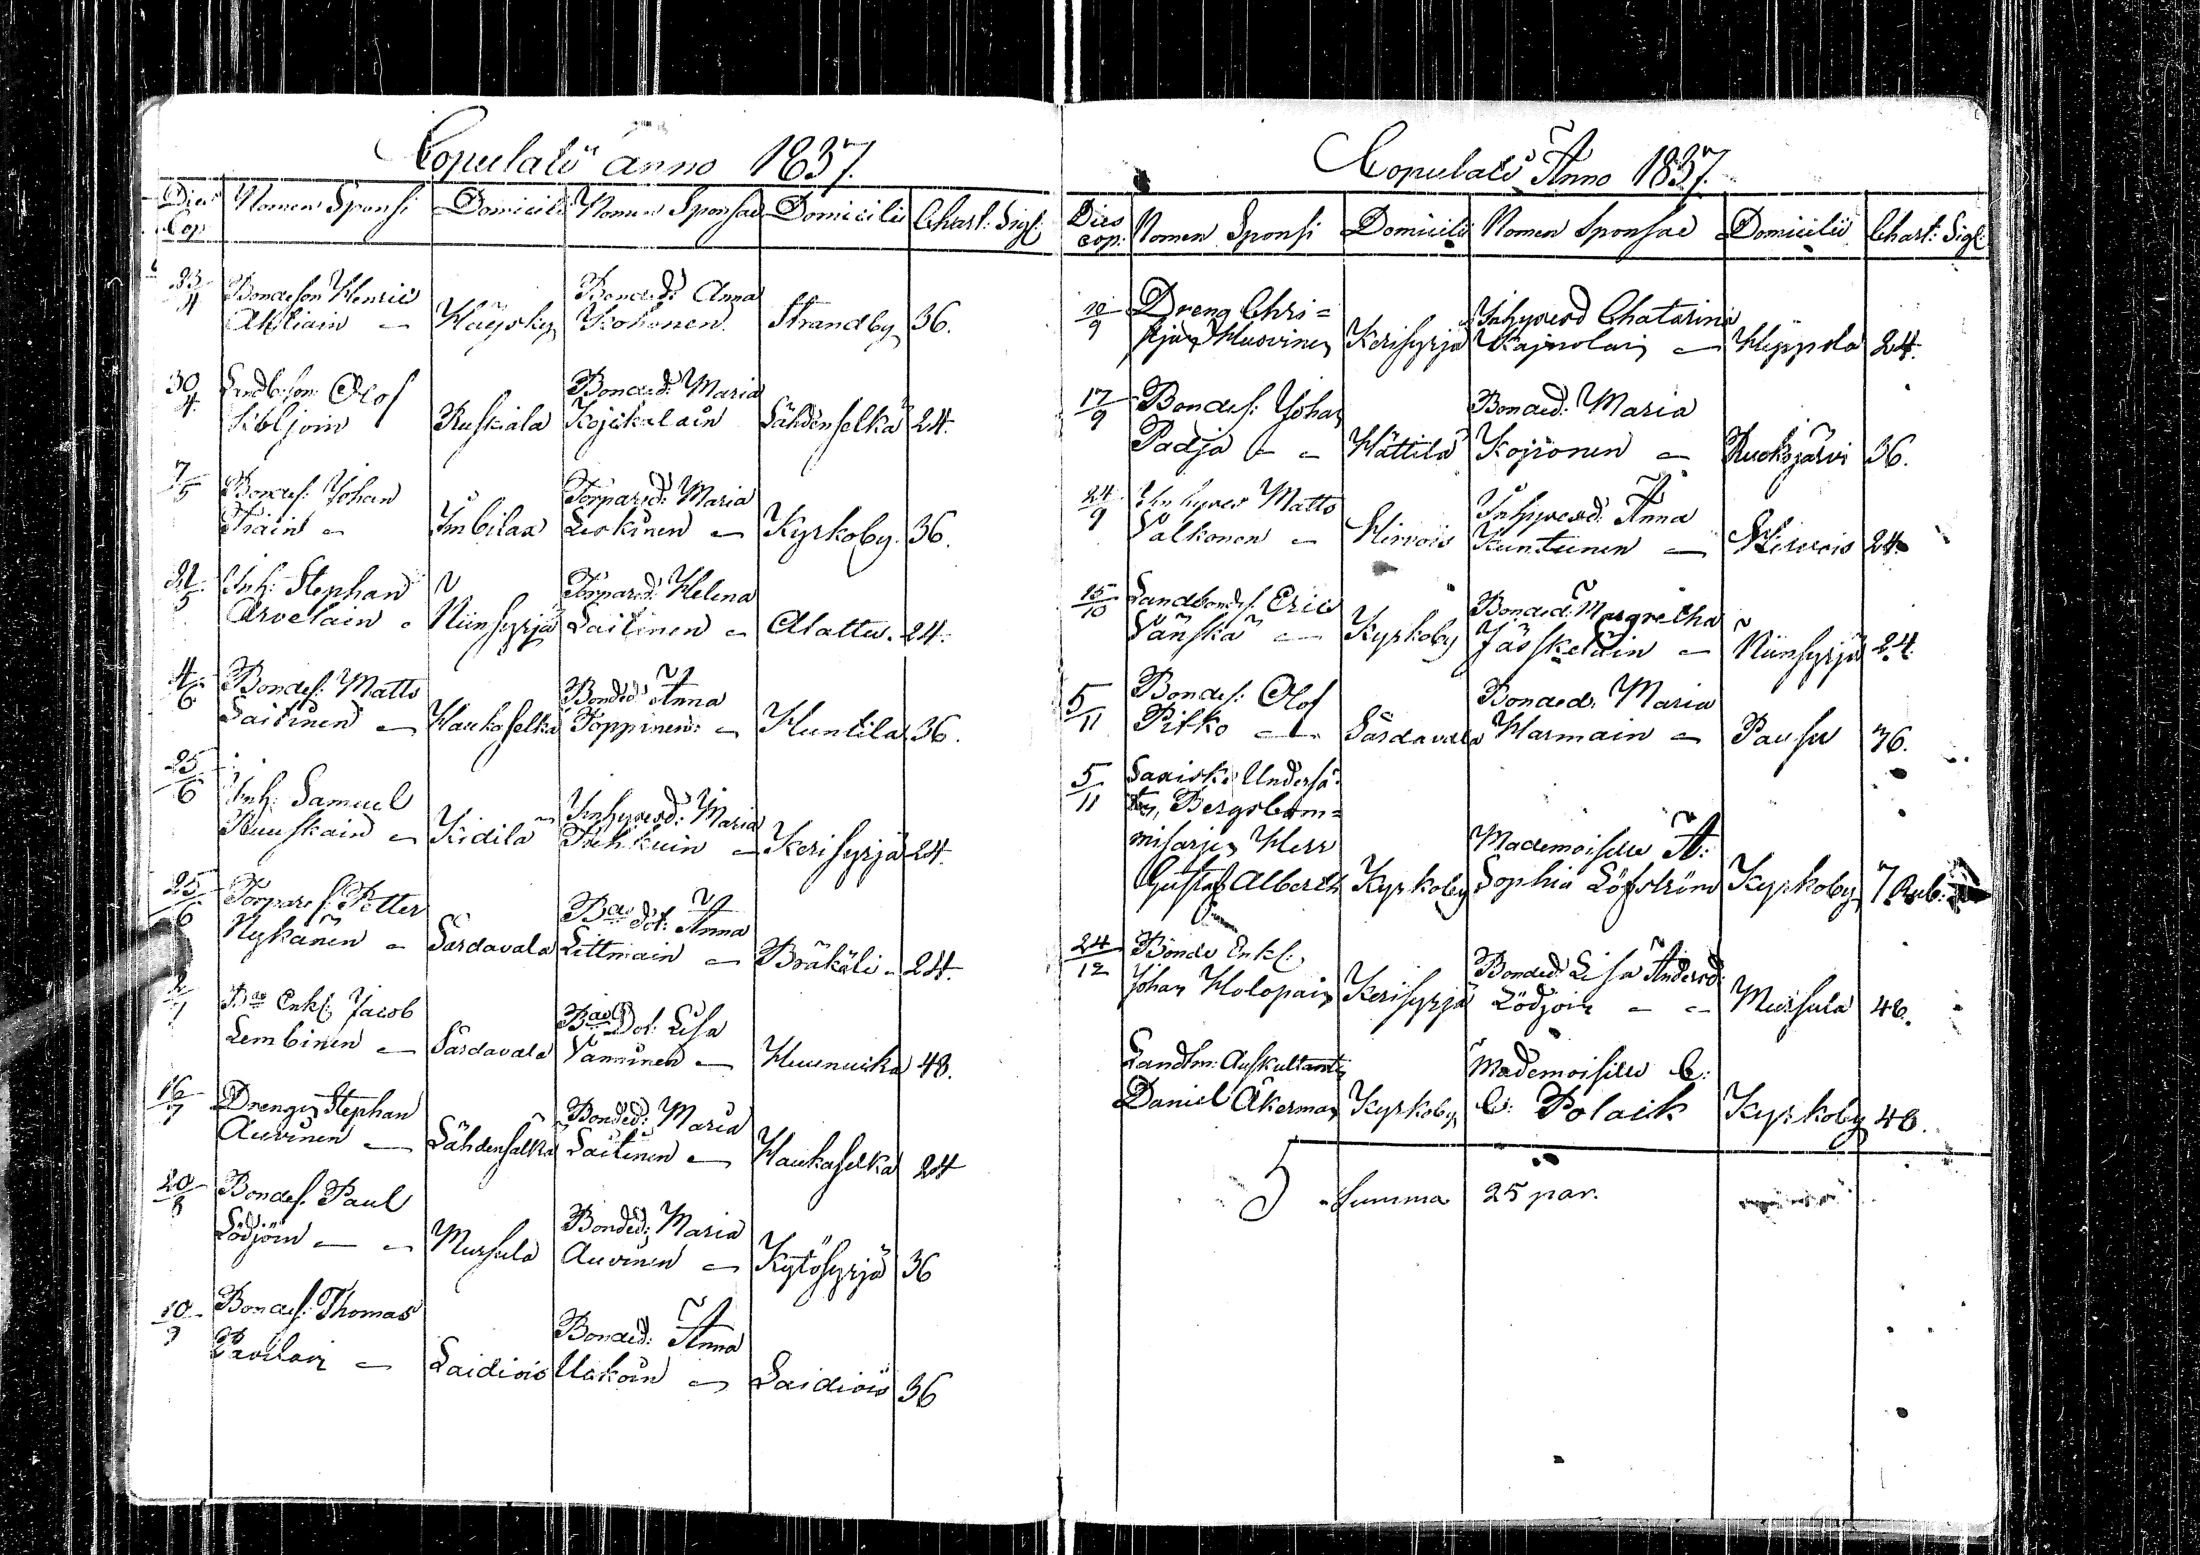 Copulati anno 1837.
Dies Cop. Nomen Sponsi Domicili Nomen Sponsae Domicilii Chart: Sigl:
23/4 Bondeson Henric Bonded: Anna
Akliain — Häysky Kohonen Strandby 36.
30/4 Landb:son Olof Bonded: Maria
Kiljoin Ruskiala Kojikalain Lähdenselkä 24.
7/5 Bondes: Johan Torpared: Maria
Tiain — Imbilax Leskinen — Kyrkoby. 36.
21/5 Inh: Stephan Torpared: Helena
Arvelain — Niinsyrjä Laitinen — Alattu. 24.
4/6 Bondes: Matts Bonded: Anna
Laitinen — Haukaselkä Toppinen — Huntila 36.
25/6
Inh: Samuel Inhysesd: Maria
Ruuskain — Kidilä — Kerisyrjä 24.
25/6 Torpare s: Petter Bae dot: Anna
Nykänen — Sordavala Littmain — Bräkäli — 24.
Bae Enkl: Jacob Bae Dot: Lisa
Lembinen — Sordavala Vänninen — Huunuka 48.
16/7 Drengen Stephan Bonded: Maria
Auvinen — Lähdenselkä Laitinen — Haukaselkä 24
20/8 Bondes: Paul Bonded: Maria
Lödjöin — — Mursula Auvinen — Kytösyrjä 36
10/9 Bondes: Thomas Bonded: Anna
Pavilain — Laidiois — Laidiois 36
Copulati Anno 1837.
Dies cop: Nomen Sponsi Domicilii Nomen Sponsae Domicilii Chart: Sigl:
10/9 Dreng Chri= Inhysesd Chatarina
stjan Huovinen Kerisyrjä — Heppola 24.
17/9 Bondes: Johan Bonded: Maria
Padja — — Hättilä Kojronen — Ruokojärvi 36.
24/9 Inhyses Matts Inhysesd: Anna
Valkonen — Hirvois Kuntunen — Hirvois 24.
15/10 Landbondes: Eric Bonded: Margretha
Vänskä — Kyrkoby Jääskeläin — Niinsyrjä 24.
5/11 Bondes: Olof Bonded: Maria
Pitko — Sordavala Harmain — Pausu 36.
5/11 Saxiske Underså=
ten, Bergs Com=
misarjen Herr Mademoiselle A:
Gustaf Alberth Kyrkoby Sophia Löfström Kyrkoby 7 Rub:
24/12 Bonde Enkl: Bonded: Lisa Andersd:
Johan Holopain Kerisyrjä Lödjöin — — Mursula 48.
Landtm: Auskultanten Mademoiselle C:
Daniel Åkerman Kyrkoby C: Polack Kyrkoby 48.
Summa 25 par.